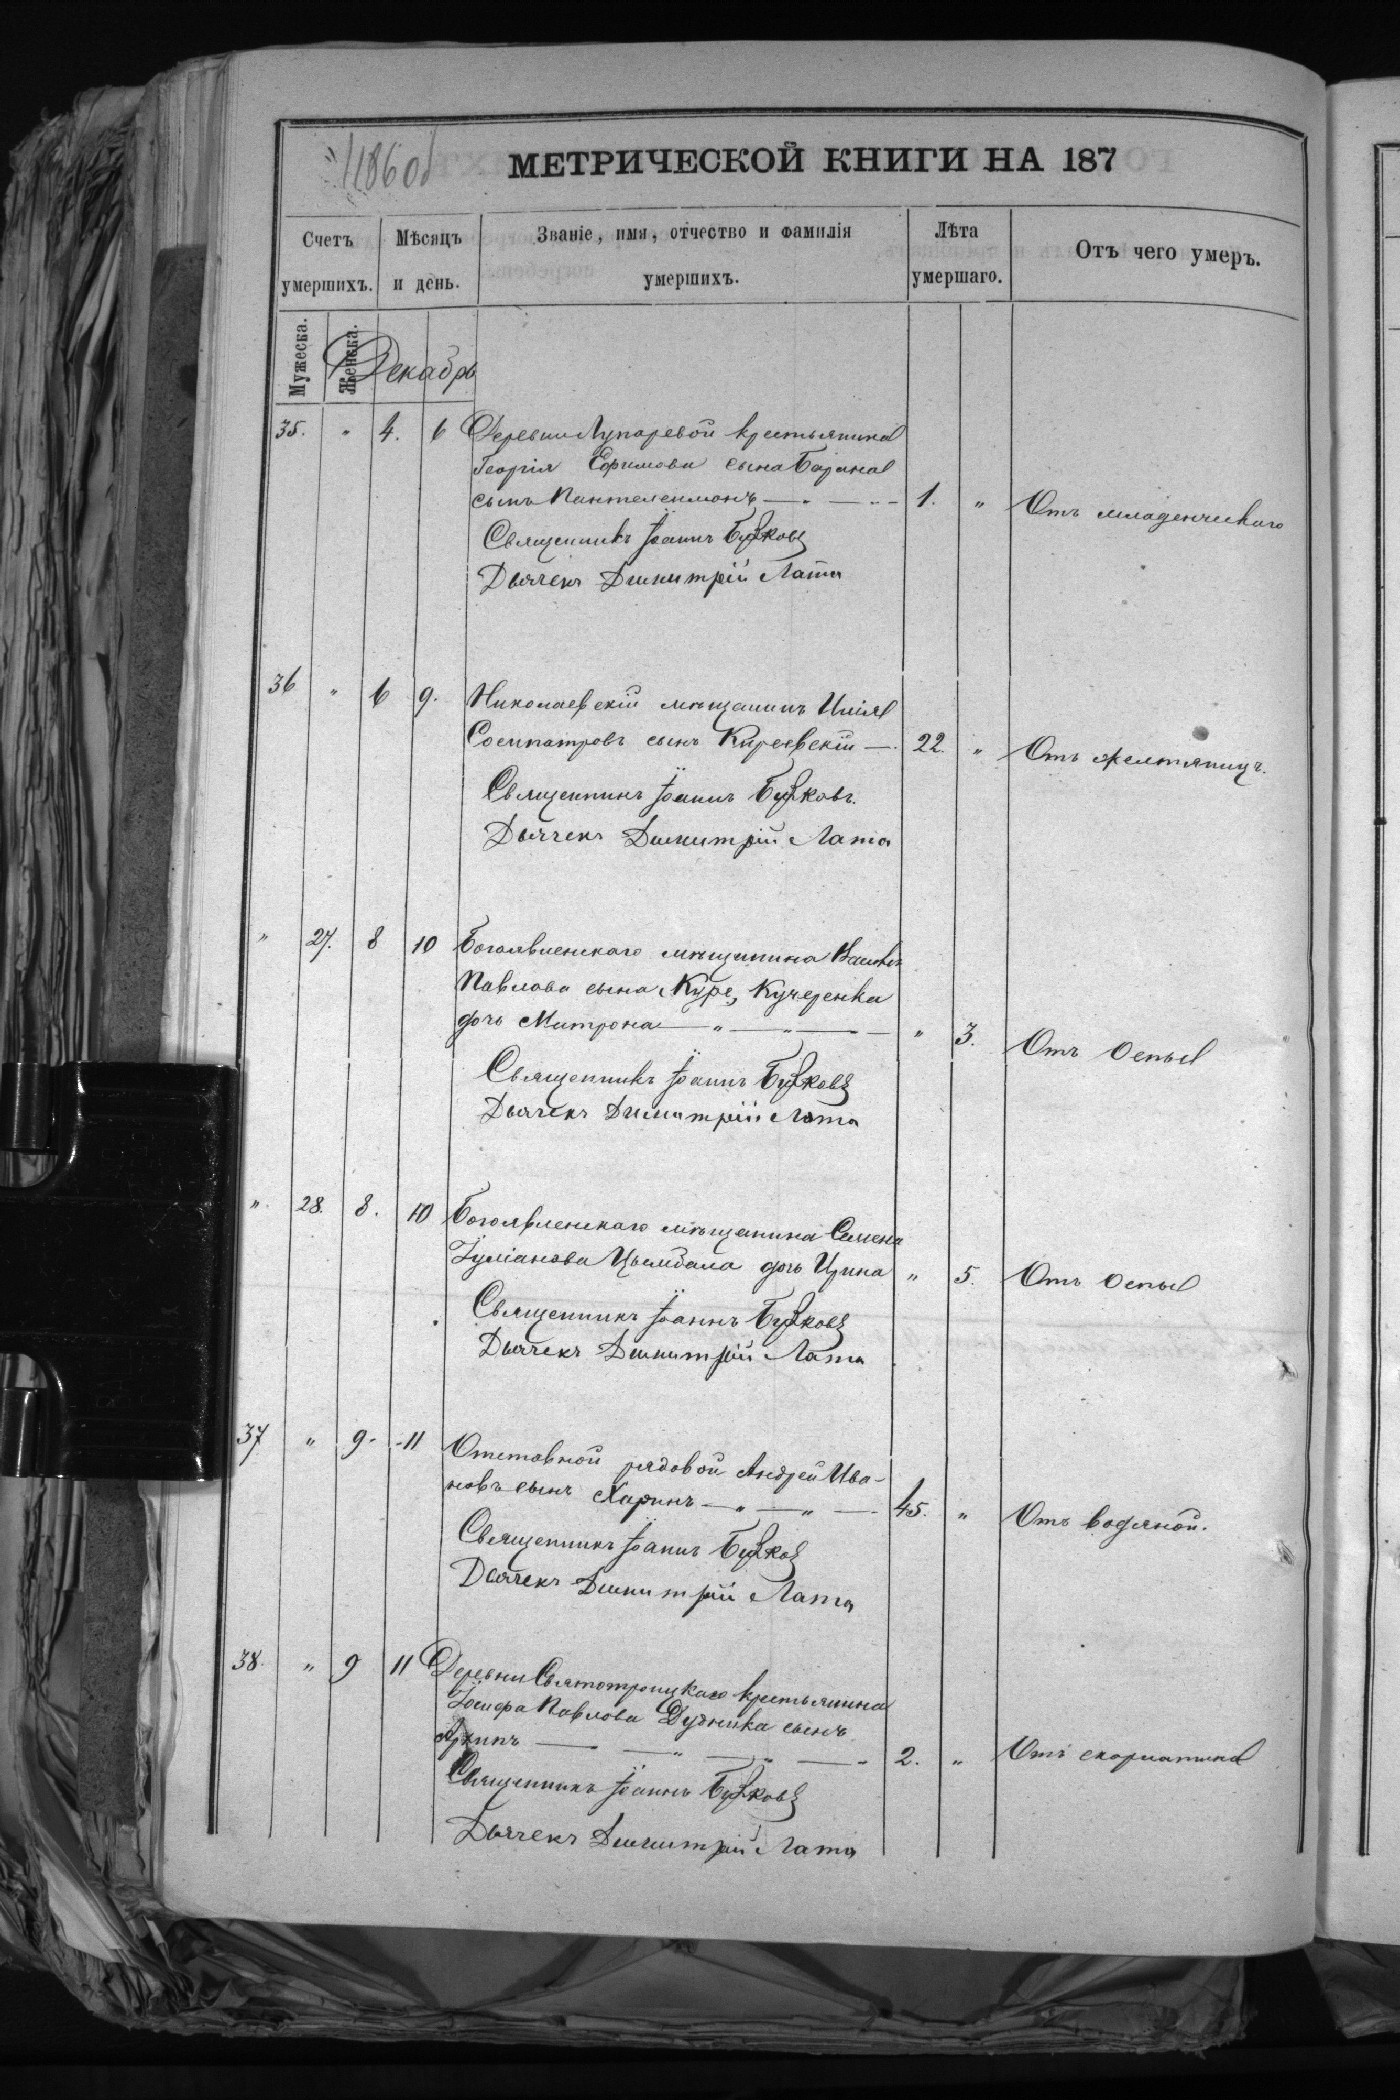 1186об
МЕТРИЧЕСКОЙ КНИГИ НА 187
Счетъ умершихъ.
Мѣсяцъ и день.
Званіе, имя, отчество и фамилія умершихъ.
Лѣта умершаго.
Отъ чего умеръ.
Мужеска.
Женска.
Декабрь
35. " 4. 6 Деревни Лупаревой крестьянина
Георгія Ефимова сына Барана
сынъ Пантелеимонъ — " — 1. " Отъ младенческаго
Священникъ Іоаннъ Бужковъ
Дьячекъ Димитрій Лата
36 " 6 9. Николаевскій мѣщанинъ Илія
Сосипатровъ сынъ Киреевскій — 22. " Отъ желтяницъ.
Священникъ Іоаннъ Бужковъ.
Дьячекъ Димитрій Лата
" 27. 8 10 Богоявленскаго мѣщанина
Павлова сына Кучеренка
дочь Матрона — " — " — " 3. Отъ Оспы
Священникъ Іоаннъ Бужковъ
Дьячекъ Димитрій Лата
" 28. 8. 10 Богоявленскаго мѣщанина Семена
Іуліанова Цымбала дочь Ирина " 5. Отъ Оспы
Священникъ Іоаннъ Бужковъ
Дьячекъ Димитрій Лата
37 " 9 11 Отставной рядовой Андрей Ива-
новъ сынъ Харинъ — " — " — 45. " Отъ водяной.
Священникъ Іоаннъ Бужковъ
Дьячекъ Димитрій Лата
38. " 9 11 Деревни Святотроицкаго крестьянина
Іосифа Павлова Дудника сынъ
— — " — " — " 2. " Отъ скарлатины
Священникъ Іоаннъ Бужковъ
Дьячекъ Димитрій Лата